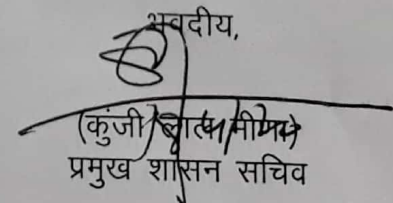 भवदीय,
(कुंजी लाल मीणा)
प्रमुख शासन सचिव